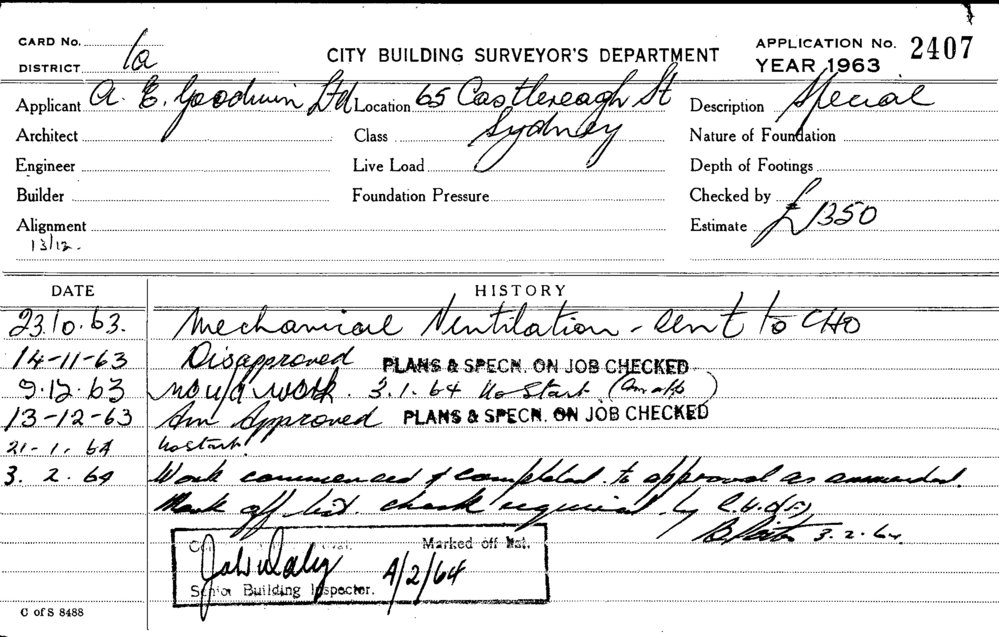 CARD No. 1a CITY BUILDING SURVEYOR'S DEPARTMENT APPLICATION No. 2407
DISTRICT YEAR 1963
Applicant A. E. Goodwin Ltd Location 65 Castlereagh St Description Special
Architect Class Sydney Nature of Foundation
Engineer Live Load Depth of Footings
Builder Foundation Pressure Checked by
Alignment Estimate £1350
13/12.
DATE HISTORY
23.10.63. Mechanical Ventilation - sent to CHO
14-11-63 Disapproved PLANS & SPECN. ON JOB CHECKED
9.12.63 no u/a work. 3.1.64 No Start.
13-12-63 Am Approved PLANS & SPECN. ON JOB CHECKED
21-1.64 No start.
3. 2. 64 Work commenced & completed to approval as ammended.
Mark off list. check required by
3.2.64.
Marked off list.
John Daly 4/2/64
Senior Building Inspector.
C of S 8488